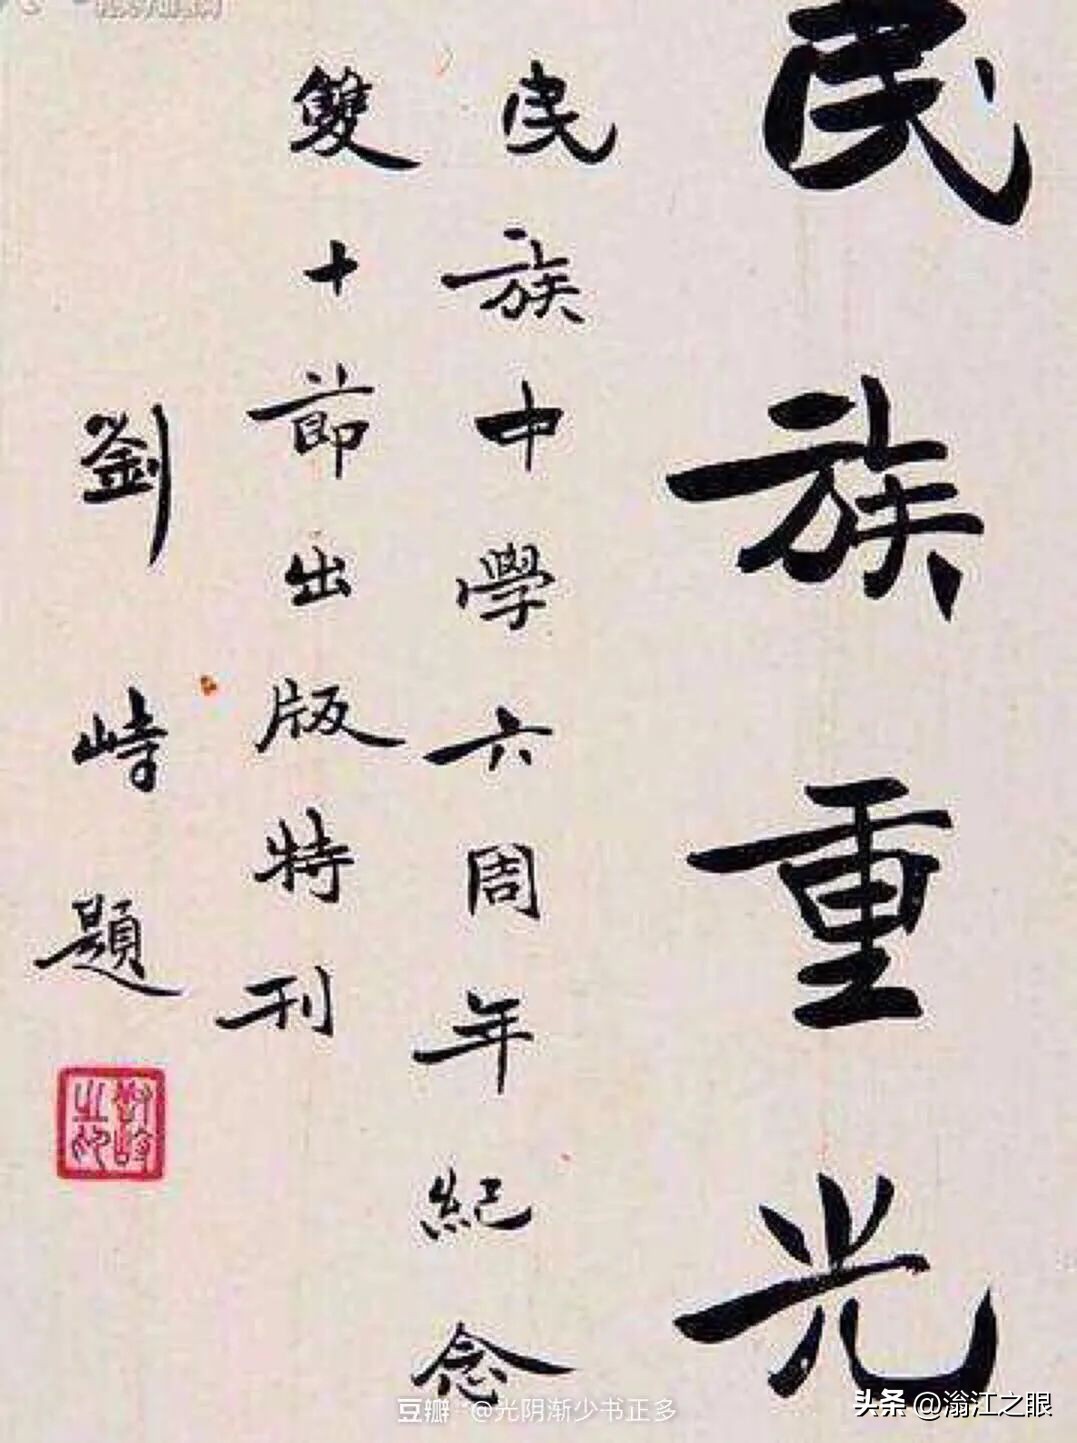 民族重光
民族中學六周年紀念
雙十節出版特刊
劉峙題
豆瓣 @光阴渐少书正多
头条 @滃江之眼